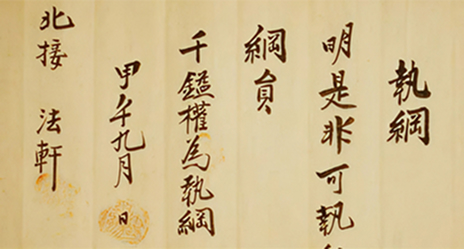 執綱
明是非可執
綱員
千鎰權為執綱
甲午九月 日
北接 法軒